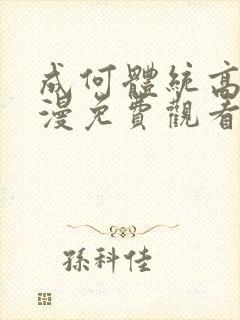 成何體統高
漫免費觀看
孫科佳